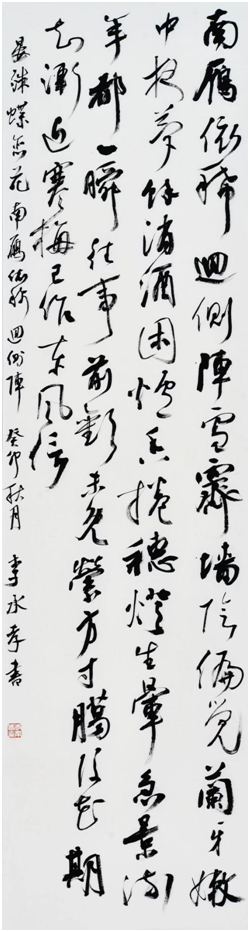 南鴈依稀迴側陣雪霽墻陰偏覺蘭牙嫩
中夜夢餘消酒困爐香捲穗燈生暈急景流
年都一瞬往事前歡未免縈方寸臘後花期
知漸近寒梅已作東風信
晏殊蝶恋花南鴈依稀迴側陣 癸卯秋月 李永孝書